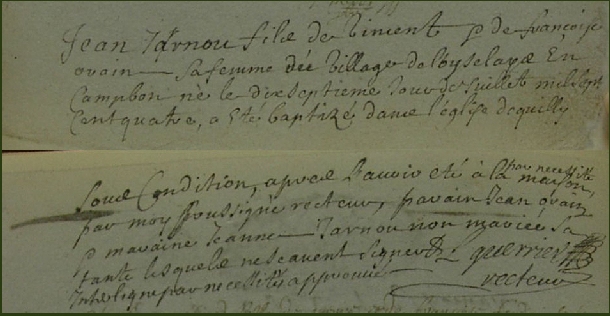 Jean Jarnou fils de vincent & de françoise
orain sa femme du village de loyselaye En
Campbon né le dixseptieme jour de juillet mil sept
cent quatre, a eté baptizé dans l'église de quilly
sous Condition, apres l'avoir eté à la maison, par necessité
par moy soussigné recteur, parain Jean orain
& maraine Jeanne Jarnou non mariée sa
tante lesquels ne scavent signer
guerrier
interligne par necessité approuvé
recteur